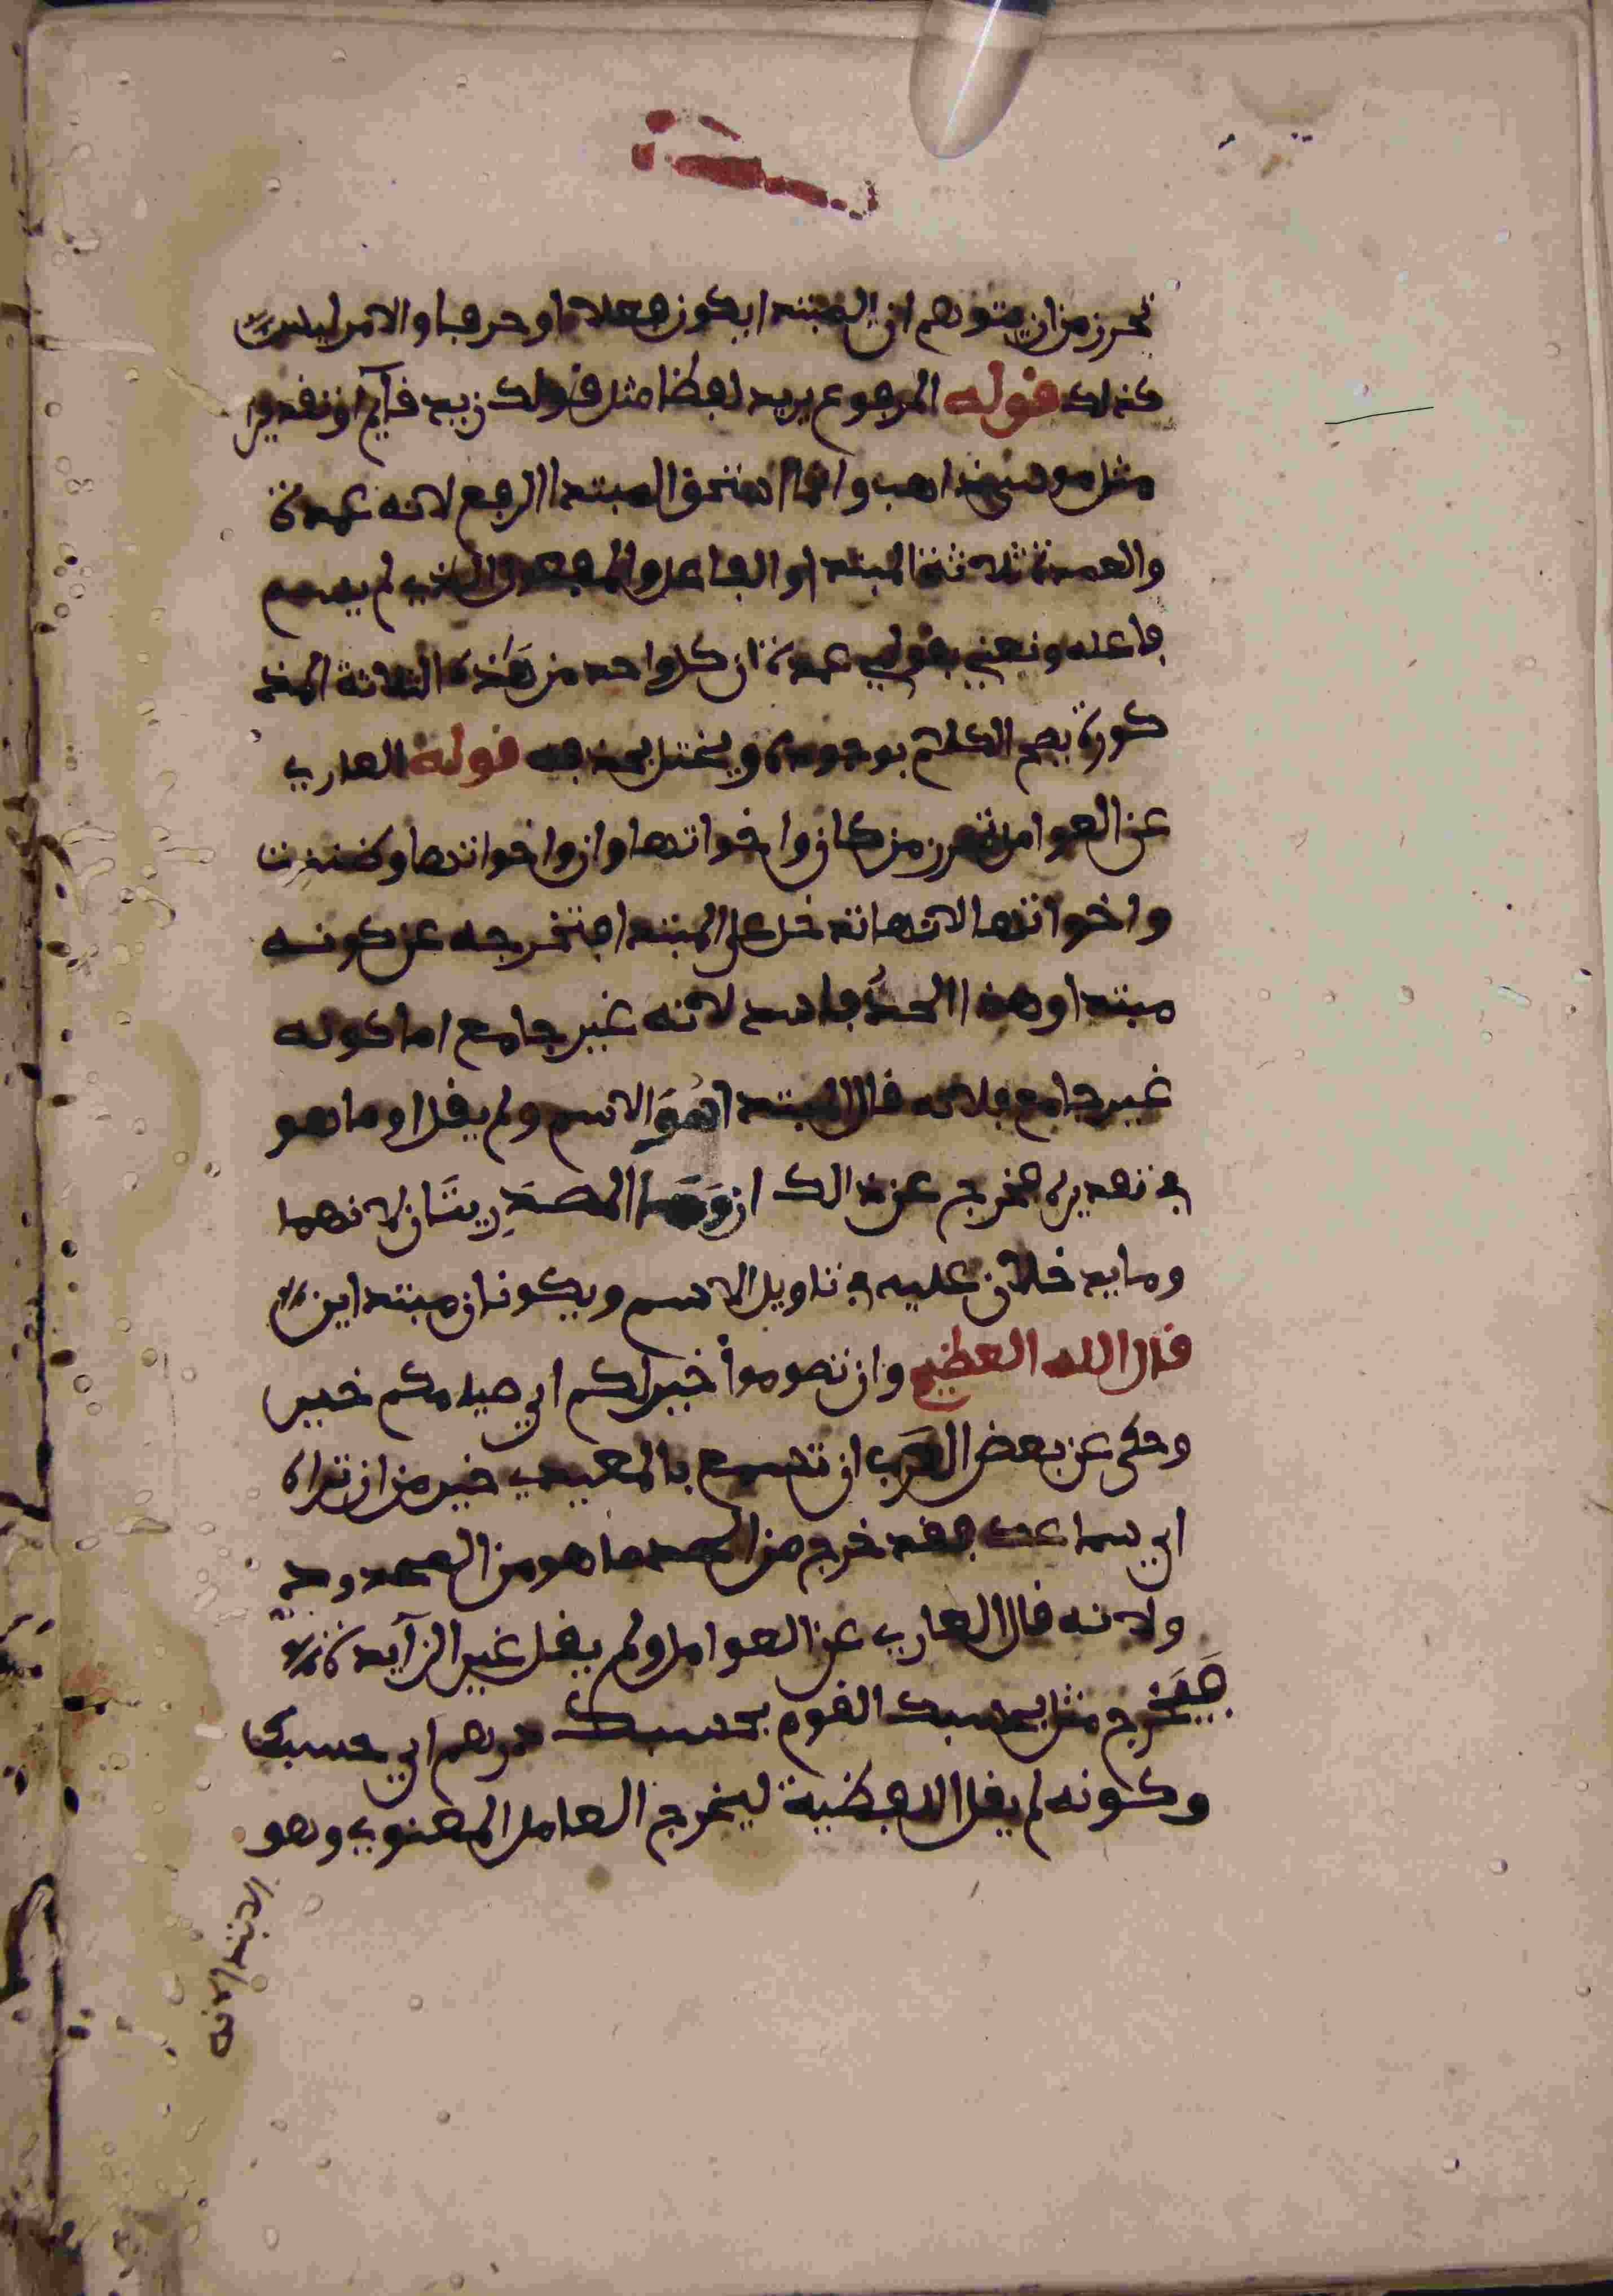 تحرز من ان يتوهم ان المبتدا يكون فعلا او حرفا والامر ليس
كذلك قوله المرفوع يريد لفظا مثل قولك زيد قآيم او تقديرا
مثل موسى ذاهب وانما استحق المبتدا الرفع لانه عمدة
والعمدة ثلاثة المبتدا والفاعل والمفعول الذي لم يسم
فاعله ونعني بقولي عمدة ان كل واحد من هَذه الثلاثة المذ
كورة يصح الكلام بوجوده ويختل بحذفه قوله العاري
عن العوامل تحرز من كان واخواتها وان واخواتها وظننت
واخواتها لانها تدخل على المبتدا فتخرجه عن كونه
مبتدا وهذا الحدُّ فاسد لانه غير جامع اما كونه
غير جامع فلانه قال المبتدا هُوَ الاسم ولم يقل او ما هو
في تقديره فخرج عن ذالك ان وَمَا المصدَرِيتَان لانهما
وما يدخلان عليه في تاويل الاسم ويكونان مبتداين
قال الله العظيم وان تصوموا خير لكم اي صيامكم خير
وحكى عن بعض العَرَب ان تسمع بالمعيدي خير من ان تراه
اي سماعك فقد خرج من الحد ما هو من المحدود
ولانه قال العاري عن العوامل ولم يقل غير الزآيدة
فَيَخرج مثل بحسبك القوم بحسبك درهم اي حسبك
وكونه لم يقل اللفظية ليخرج العامل المعنوي وهو
الابتدا لانه